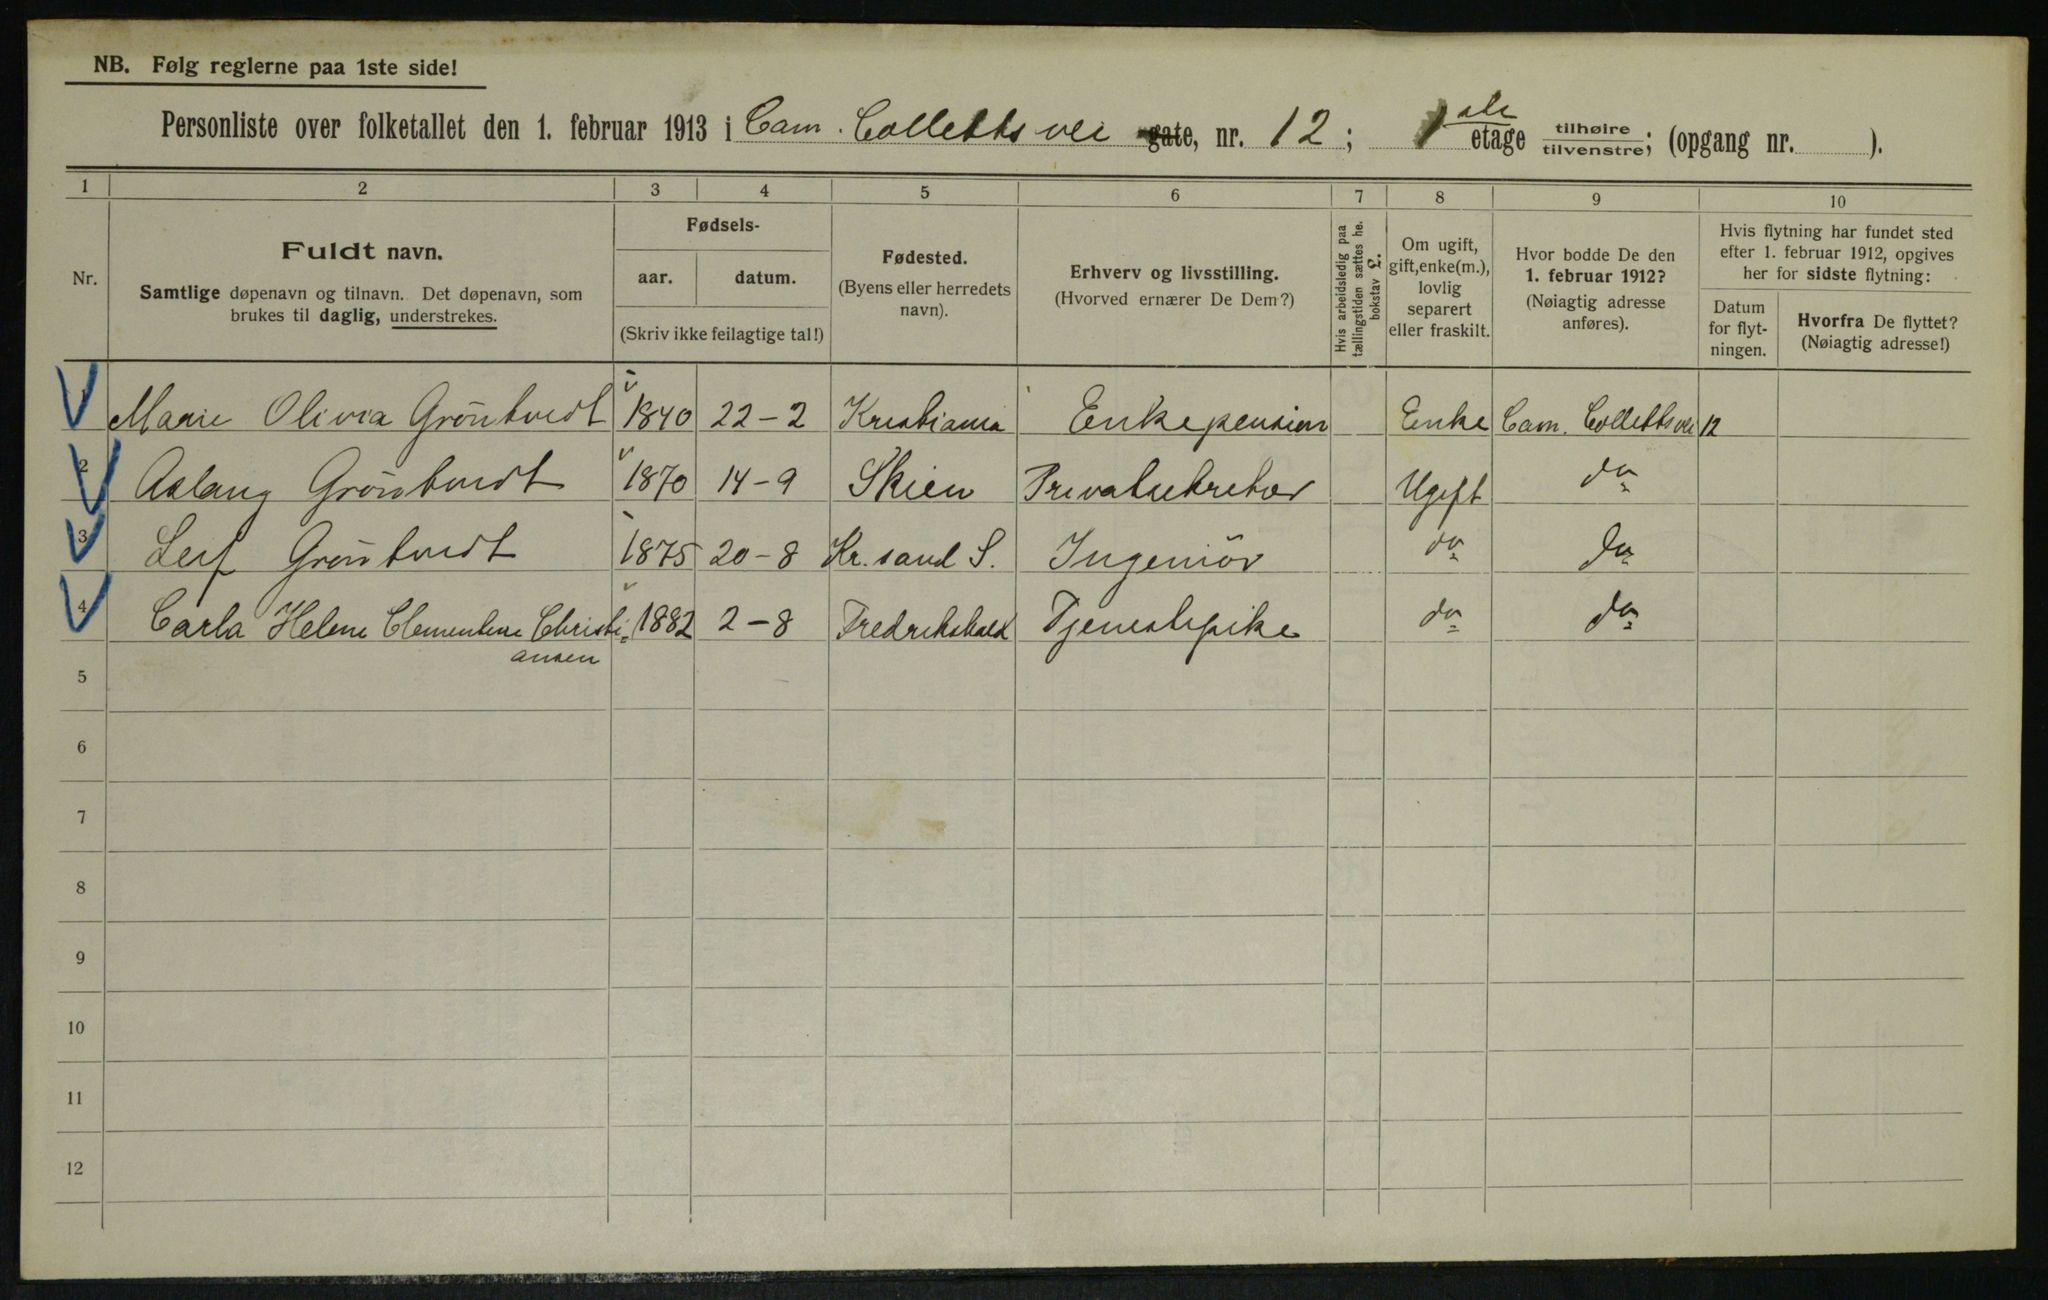 NB. Følg reglerne paa 1ste side!
Personliste over folketallet den 1. februar 1913 i Cam. Colletts vei gate, nr. 12; 1 ste etage tilhøire tilvenstre; (opgang nr. ).
1 2 3 4 5 6 7 8 9 10
Nr.
Fuldt navn.
Samtlige døpenavn og tilnavn. Det døpenavn, som
brukes til daglig, understrekes.
Fødsels-
aar. datum.
(Skriv ikke feilagtige tal!)
Fødested.
(Byens eller herredets
navn).
Erhverv og livsstilling.
(Hvorved ernærer De Dem?)
Hvis arbeidsledig paa
tællingstiden sættes he.
bokstav L.
Om ugift,
gift, enke(m.),
lovlig
separert
eller fraskilt.
Hvor bodde De den
1. februar 1912?
(Nøiagtig adresse
anføres).
Hvis flytning har fundet sted
efter 1. februar 1912, opgives
her for sidste flytning:
Datum
for flyt-
ningen.
Hvorfra De flyttet?
(Nøiagtig adresse!)
1 Marie Olivia Gröntvedt 1840 22-2 Kristiania Enkepension Enke Cam. Colletts vei 12
2 Aslaug Gröntvedt 1870 14-9 Skien Privatsekretær Ugift do
3 Leif Gröntvedt 1875 20-8 Kr.sand S. Ingeniör do do
4 Carla Helene Clementine Christi= 1882 2-8 Fredrikshald Tjenestepike do do
ansen
5
6
7
8
9
10
11
12